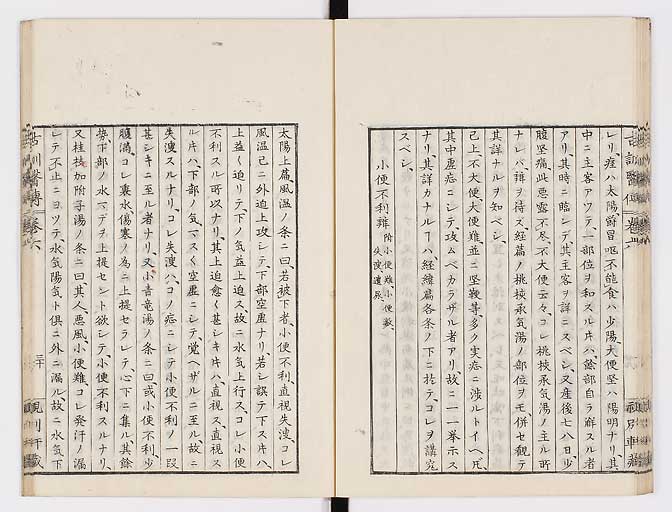 レリ痙ハ太陽欝冒嘔不能食ハ少陽大便坚ハ陽明ナリ其
中ニ主客アツテ一部位ヲ和スル片ハ餘部自ラ解スル者
アリ其時ニ臨ンデ其主客ヲ詳ニスベシ又産後七八日少
腹坚痛此悪露不尽不大便云々コレ桃核承気湯ノ主ル所
ナレバ辨ヲ待ズ経篇ノ桃核承気湯ノ部位ヲモ併セ観テ
其詳ナルヲ知ベシ
已上不大便大便難並ニ坚鞕等多ク実症ニ渉ルトイヘ𪜈
其中虚症ニシテ攻ムベカラザル者アリ故ニ一一挙示ス
ナリ其詳カナルヿハ経篇各条ノ下ニ於テコレヲ講究
スベシ
小便不利辨 附小便難小便數失溲遺尿
太陽上篇風温ノ条ニ曰若被下者小便不利直視失溲コレ
風温已ニ外迫上攻シテ下部空虚ナリ若シ誤テ下ス片ハ
上益〻迫リテ下ノ気益上迫ス故ニ水気上行スコレ小便
不利スル所以ナリ其上迫愈〻甚シキ片ハ直視ス直視ス
ル片ハ下部ノ気マスく空虚ニシテ覚ヘザルニ至ル故ニ
失溲スルナリコレ失溲ハコノ症ニシテ小便不利ノ一段
甚シキニ至ル者ナリ又小青竜湯ノ条ニ曰或小便不利少
腹満コレ裏水傷寒ノ為ニ上提セラレテ心下ニ集ル其餘
勢下部ノ水マデヲ上提セント欲シテ小便不利スルナリ
又桂枝加附子湯ノ条ニ曰其人悪風小便難コレ発汗ノ漏
レテ不止ニヨツテ水気陽気ト俱ニ外ニ漏ル故ニ水気下
古訓醫傳 巻六
三十